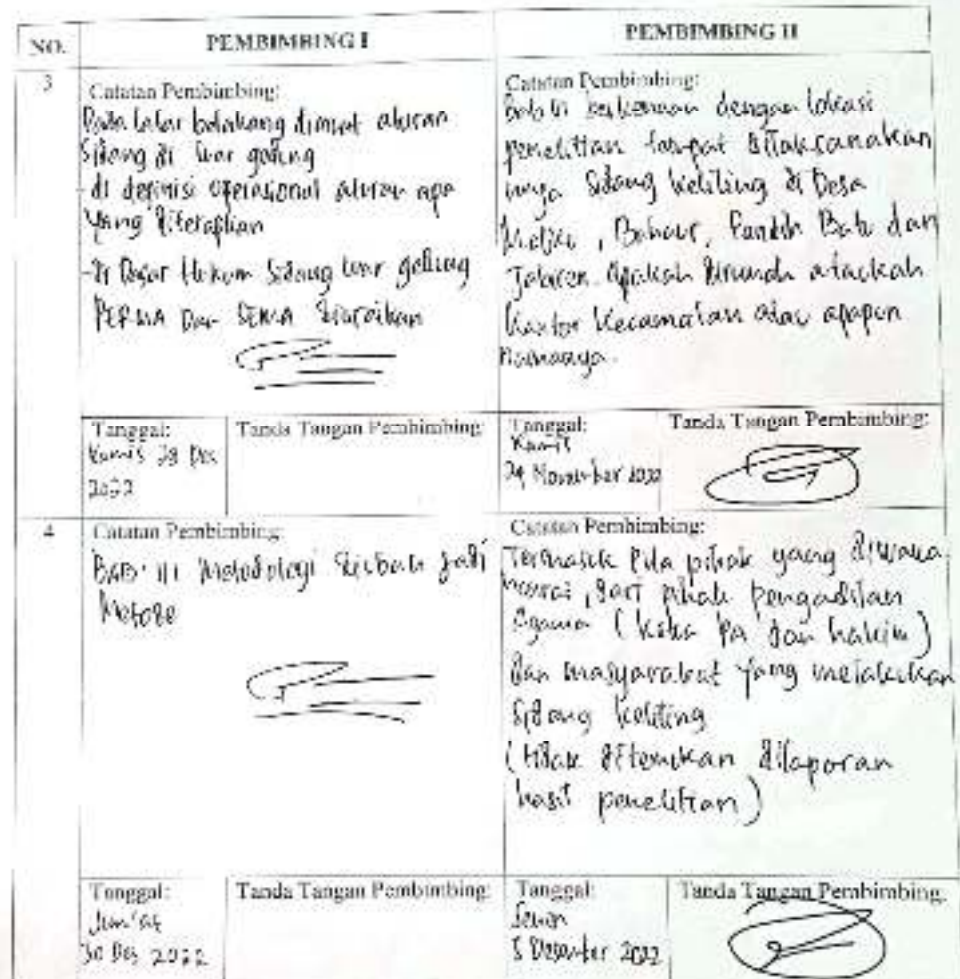 NO.
PEMBIMBING I
PEMBIMBING II
3
Catatan Pembimbing:
Pada latar belakang dimuat aturan
Sidang di luar gedung
- di definisi operasional aturan apa
yang diterapkan
- di Dasar Hukum Sidang luar gedung
PERMA Dan SEMA diuraikan
Catatan Pembimbing:
Bab IV berkenaan dengan lokasi
penelitian tempat dilaksanakan
nya Sidang keliling di Desa
Maliku, Bahaur, Pandih Batu dan
Jabiren. Apakah dirumah ataukah
Kantor Kecamatan atau apapun
Namanya.
Tanggal:
Kamis 29 Des
2022
Tanda Tangan Pembimbing:
Tanggal:
Kamis
24 November 2022
Tanda Tangan Pembimbing:
4
Catatan Pembimbing:
BAB III Metodologi dirubah jadi
Metode
Catatan Pembimbing:
Termasuk Pula pihak yang diwawa
ncarai, dari pihak pengadilan
Agama (Ketua PA dan hakim)
dan masyarakat yang melakukan
Sidang keliling
(tidak ditemukan dilaporan
hasil penelitian)
Tanggal:
Jum'at
30 Des 2022
Tanda Tangan Pembimbing:
Tanggal:
Senin
5 Desember 2022
Tanda Tangan Pembimbing: